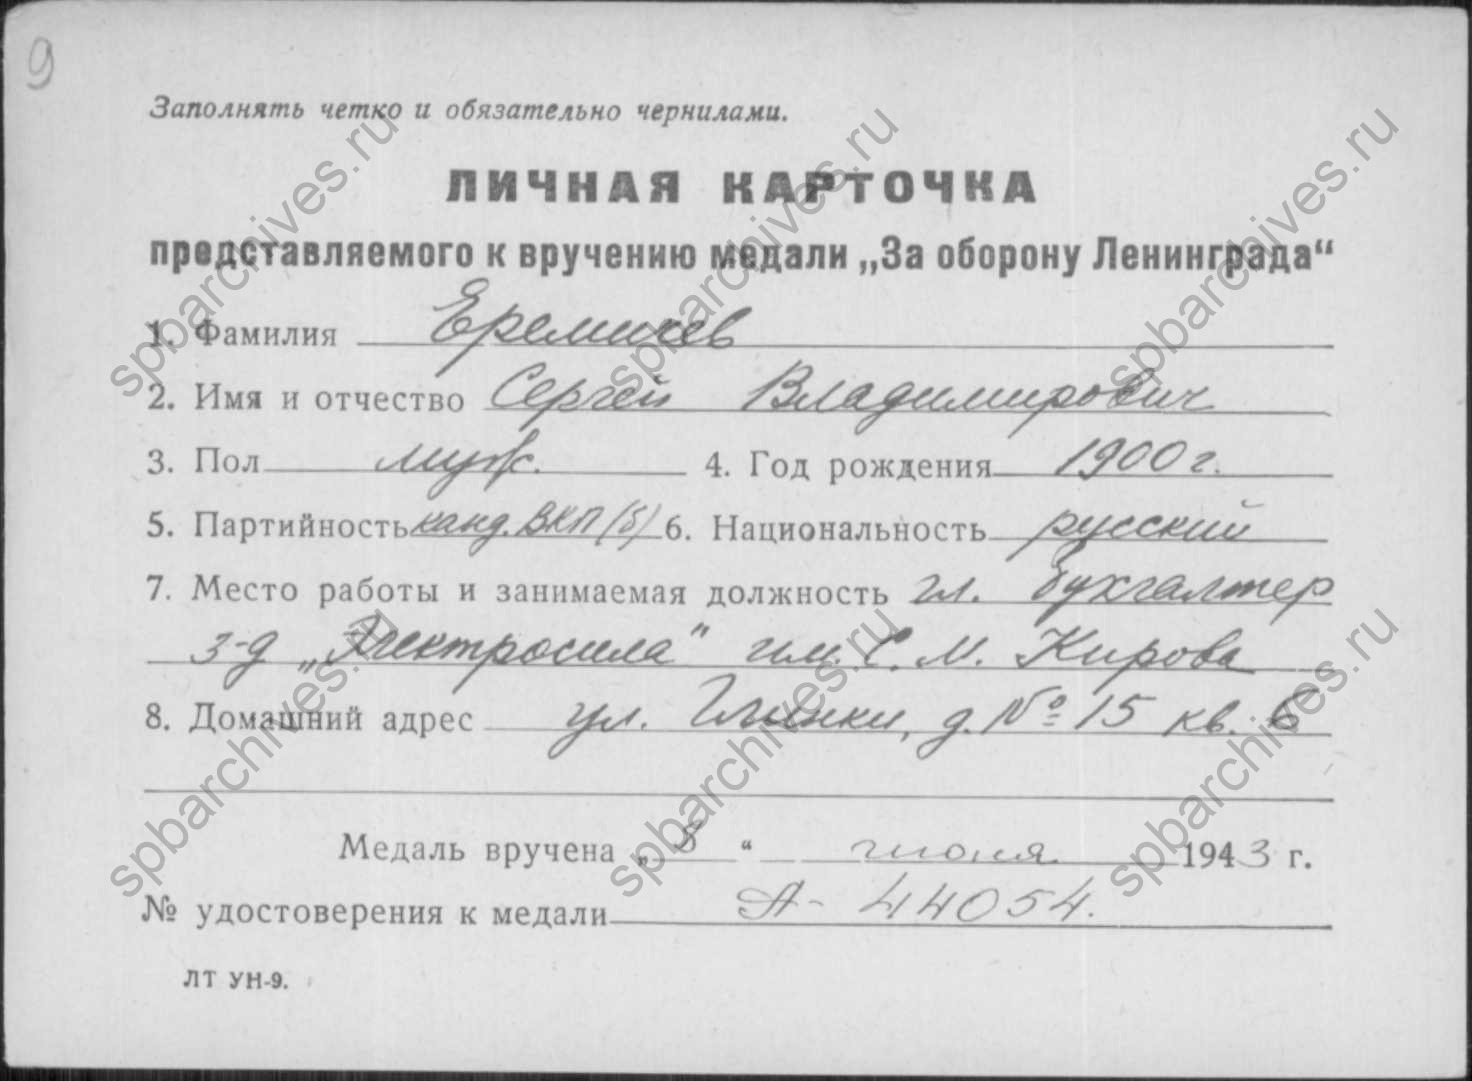 9
Заполнять четко и обязательно чернилами.
ЛИЧНАЯ КАРТОЧКА
представляемого к вручению медали „За оборону Ленинграда“
1. Фамилия Еремичев
2. Имя и отчество Сергей Владимирович
3. Пол муж. 4. Год рождения 1900 г.
5. Партийность канд. ВКП(б) 6. Национальность русский
7. Место работы и занимаемая должность гл. бухгалтер
з-д „Электросила“ им. С. М. Кирова
8. Домашний адрес ул. Глинки, д. № 15 кв. 6
Медаль вручена „8“ июня 1943 г.
№ удостоверения к медали А-44054.
ЛТ УН-9.
spbarchives.ru
spbarchives.ru
spbarchives.ru
spbarchives.ru
spbarchives.ru
spbarchives.ru